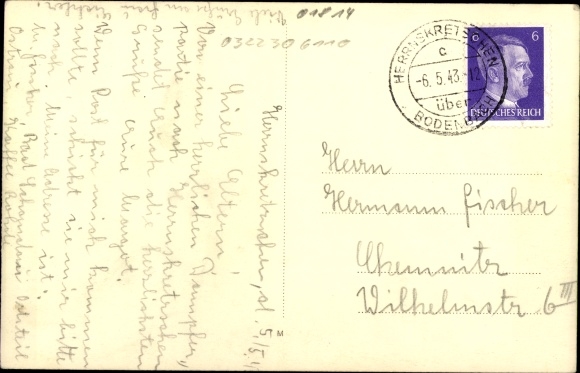 01814
0322306110
HERRNSKRETSCHEN
c
-6.5.43.-12
über
BODENBACH
6
DEUTSCHES REICH
Herrn
Hermann Fischer
Chemnitz
Wilhelmstr 6 III
Herrnskretschen, d. 5./5.4
Liebe Eltern!
Von einer herrlichen Dampfer,,
Partie nach Herrnskretschen
sendet Euch die herzlichsten
Grüße eure Margot.
Wenn Post für mich kommen
sollte schickt sie mir bitte
nach. Meine Adresse ist:
Fischer Bad Schandau Ostteil
Viele Grüße an